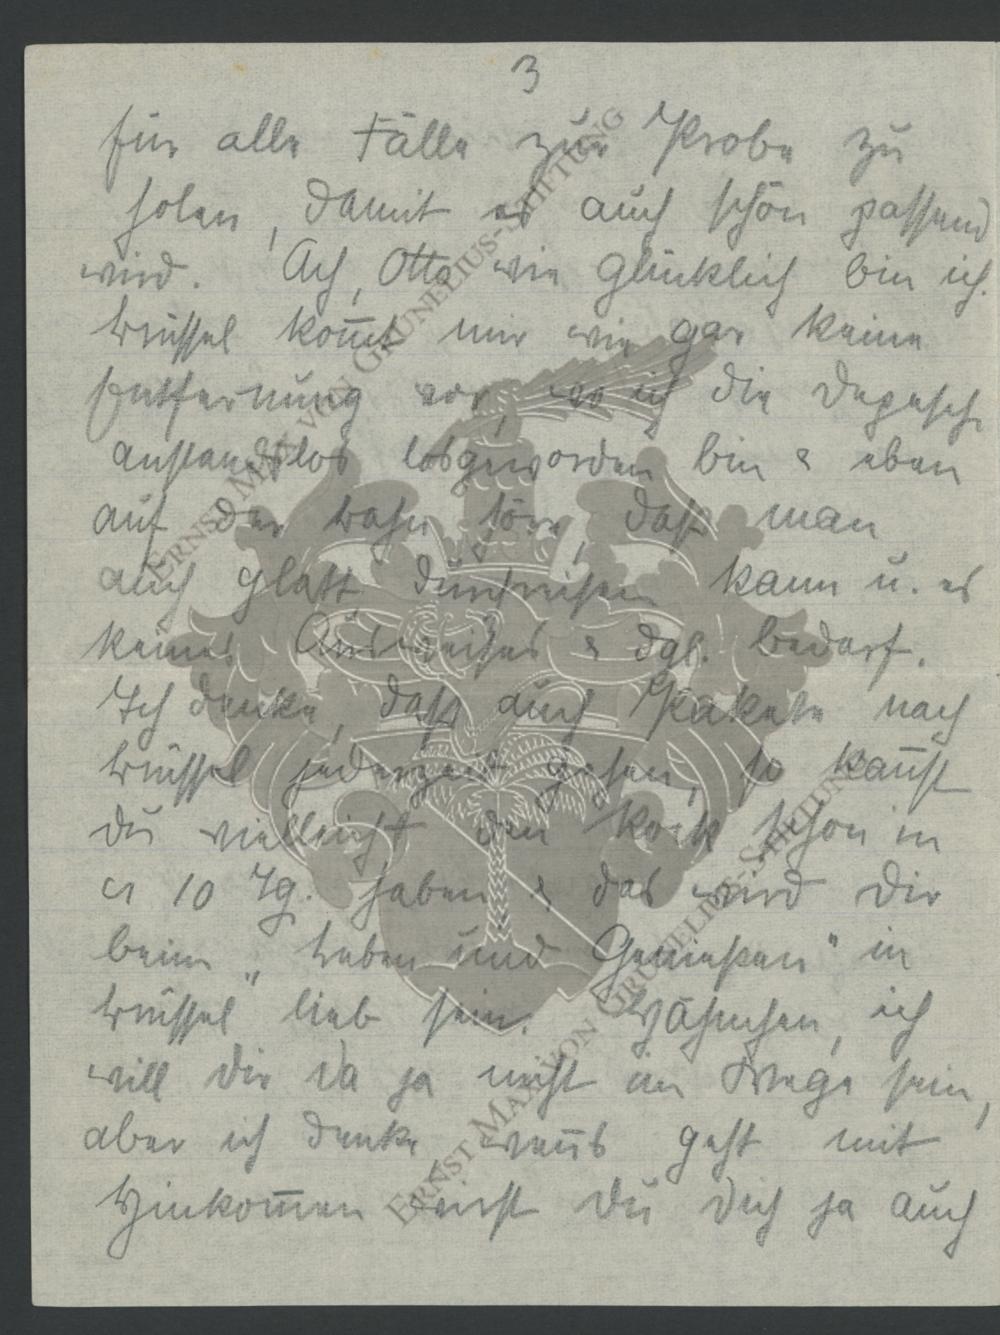 3
für alle Fälle zur Probe zu
holen, damit es auch schön passend
wird. Ach, Otto wie glücklich bin ich.
Brüssel kom̅t mir wie gar keine
Entfernung vor, wo ich die Depesche
anstandslos losgeworden bin & eben
auf der Bahn höre, daß man
auch glatt durchreisen kann u. es
keines Ausweises & dgl. bedarf.
Ich denke, daß auch Pakete nach
Brüssel jederzeit gehen, so kan̅st
du vielleicht den Rock schon in
10 Tg. haben & das wird dir
beim „Leben und Genießen" in
Brüssel" lieb sein. ich
will dir da ja nicht im Wege sein,
aber ich denke wen̅s geht mit
Hinkom̅en wirst du dich ja auch
ERNST MAX VON GRUNELIUS-STIFTUNG
ERNST MAX VON GRUNELIUS-STIFTUNG